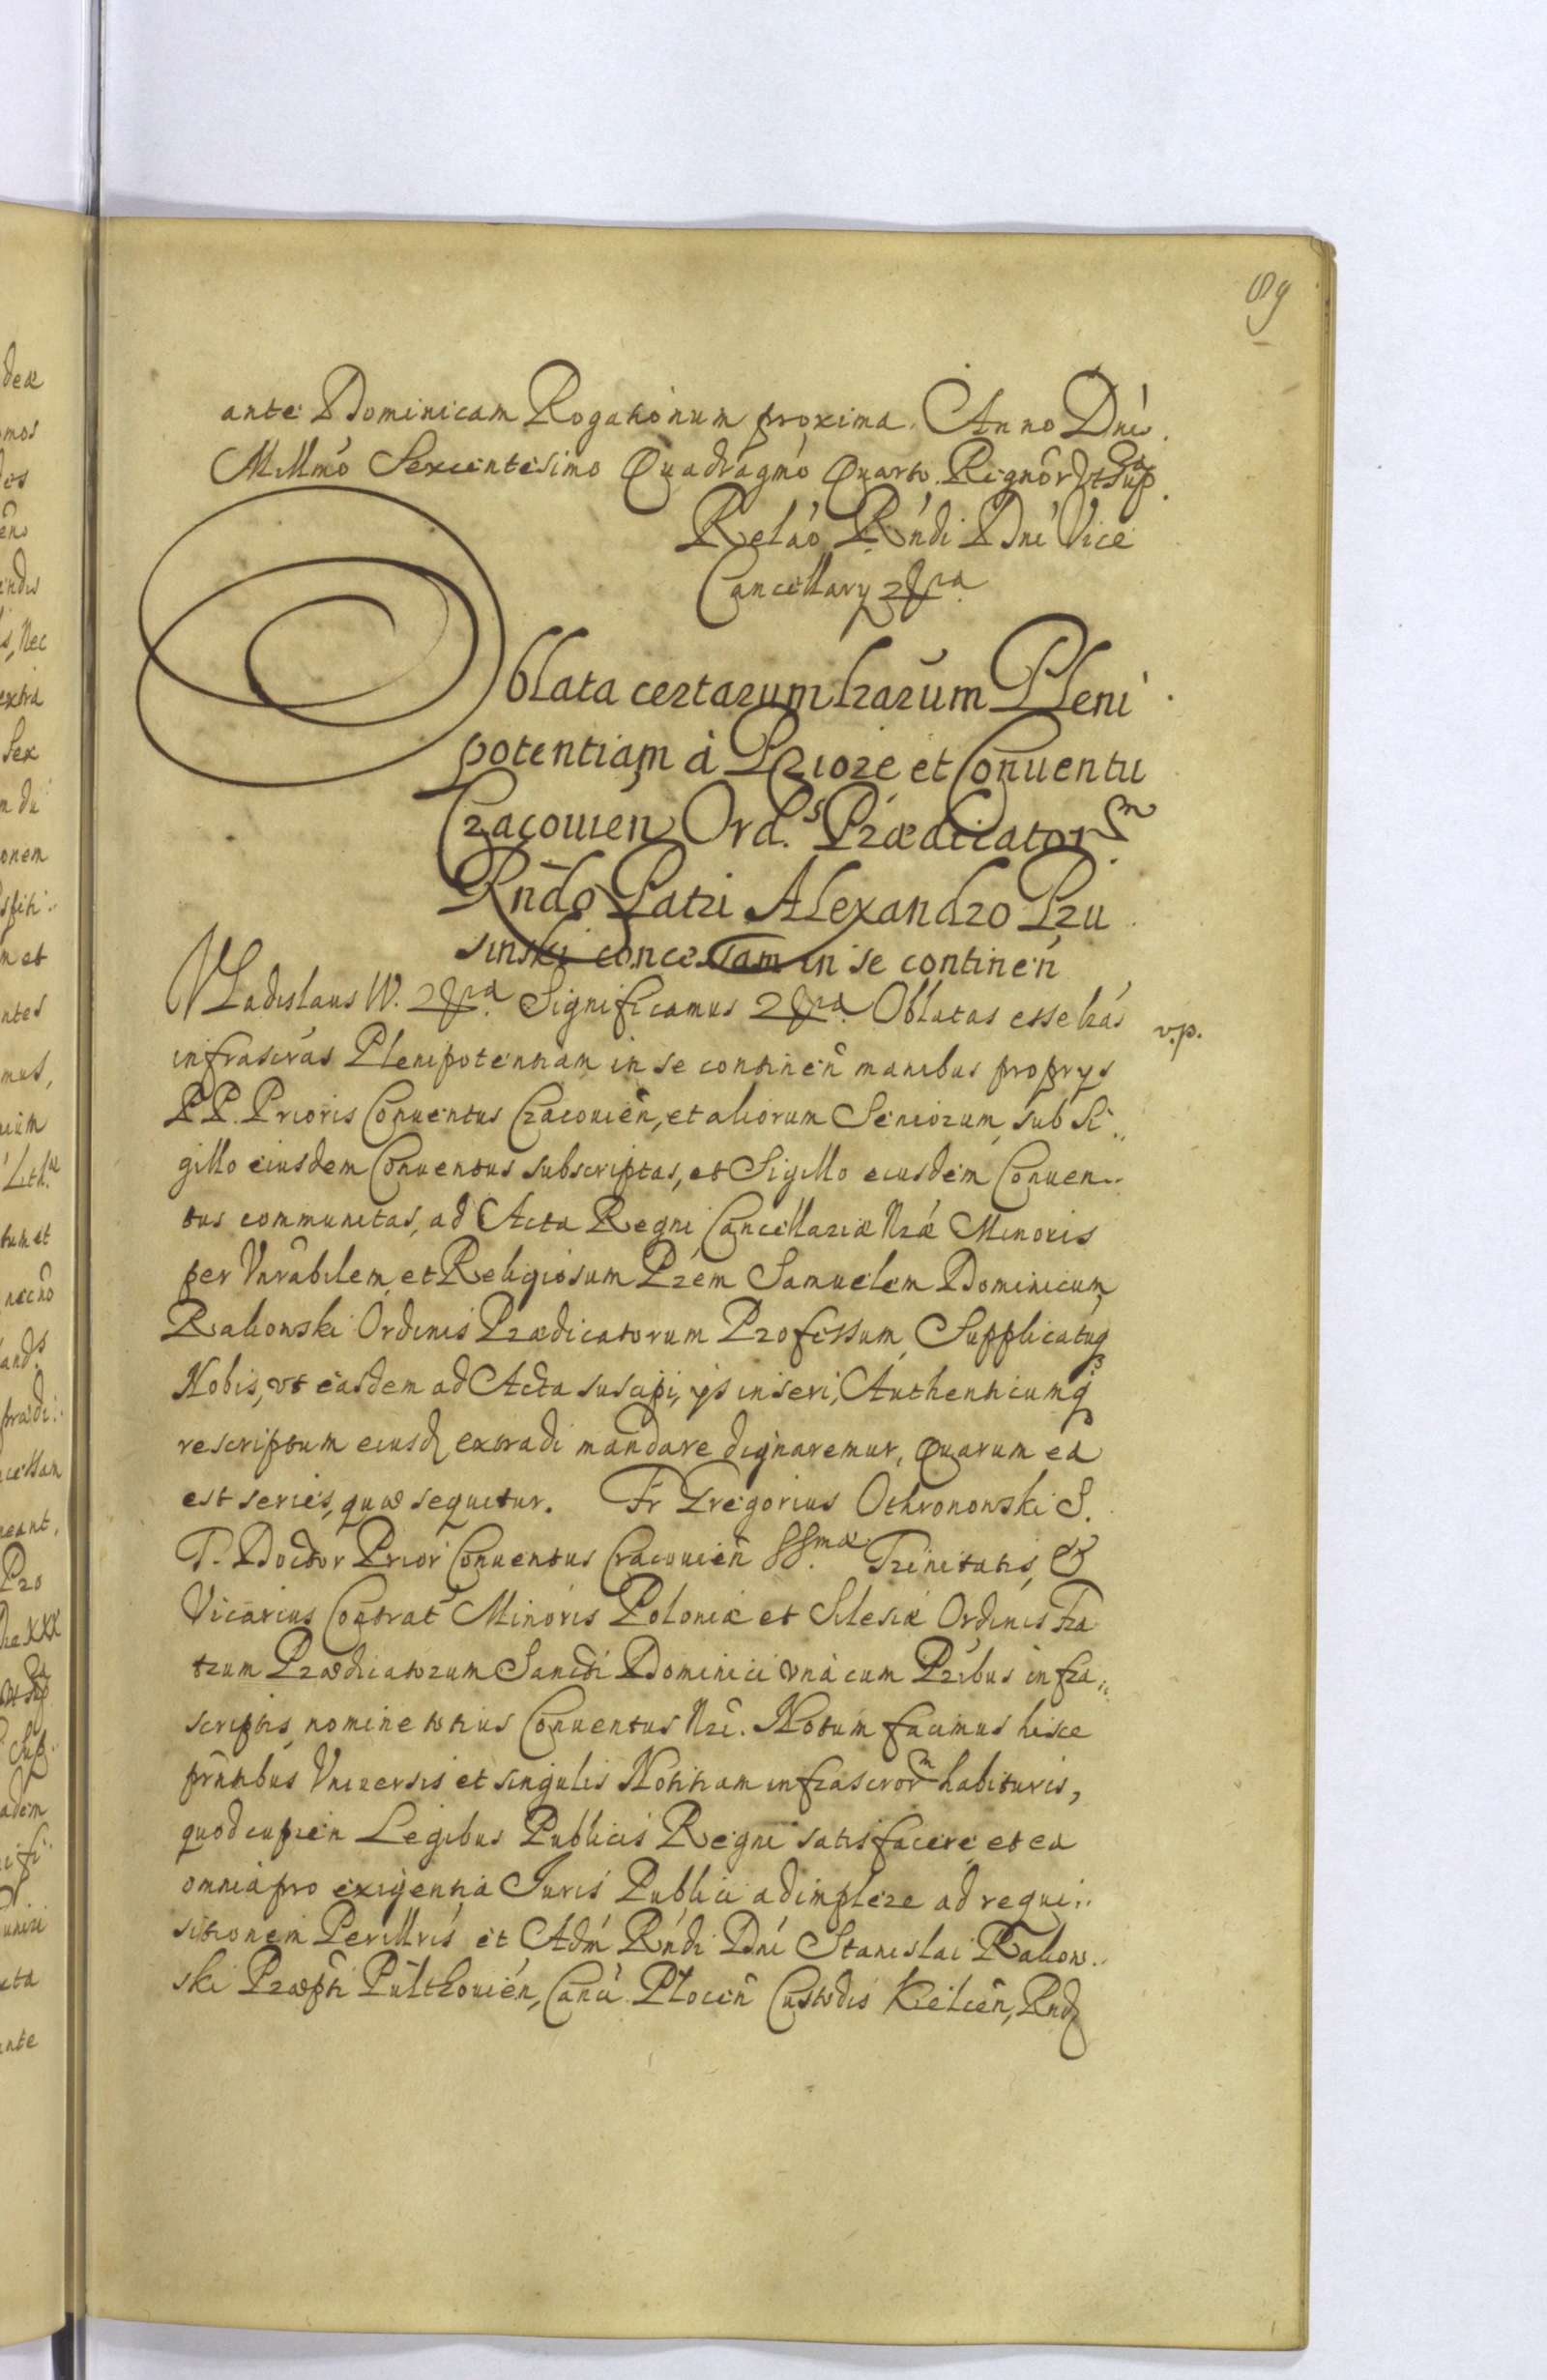 89
ante Dominicam Rogationum proxima. Anno Dni.
Millmo Sexcentesimo Quadragmo Quarto. Regnor vt Supa.
Relao Rndi Dni Vice
Cancellarÿ
Oblata certarum lrarum Pleni
potentiam à Priore et Conuentu
Cracouien Ord.s Prædicatorm
Rndo Patri Alexandro Pru
sinski concessam in se continen
Vladislaus IV. Significamus Oblatas esse lras
v.p.
infrascras Plenipotentiam in se continen manibus proprys
PP. Prioris Conuentus Cracouien, et aliorum Seniorum, sub Si..
gillo eiusdem Conuentus subscriptas, et Sigillo eiusdem Conuen..
tus communitas, ad Acta Regni Cancellariæ Nræ Minoris
per Vnrabilem et Religiosum Prem Samuelem Dominicum
Ralionski Ordinis Prædicatorum Professum, Supplicatuq
Nobis, vt easdem ad Acta suscipi, ys inseri, Authenticumq
rescriptum eiusd extradi mandare dignaremur, Quarum ea
est series, quæ sequitur. Fr Gregorius Othronowski S.
T. Doctor Prior Conuentus Cracouien SSmæ. Trinitatis, &
Vicarius Contrat Minoris Poloniæ et Silesiæ Ordinis Fra
trum Prædicatorum Sancti Dominici vnà cum Pribus infra..
scriptis, nomine totius Conuentus Nri. Notum facimus hisce
prntibus Vniuersis et singulis Notitiam infrascrorm habituris,
quod cupien Legibus Publicis Regni satisfacere et ea
omnia pro exigentia Iuris Publici adimplere ad requi..
sitionem Perillris et Adm Rndi Dni Stanislai Ralion..
ski Præpti Pultouien, Canci Plocen Custodis Kielcen, Rnd